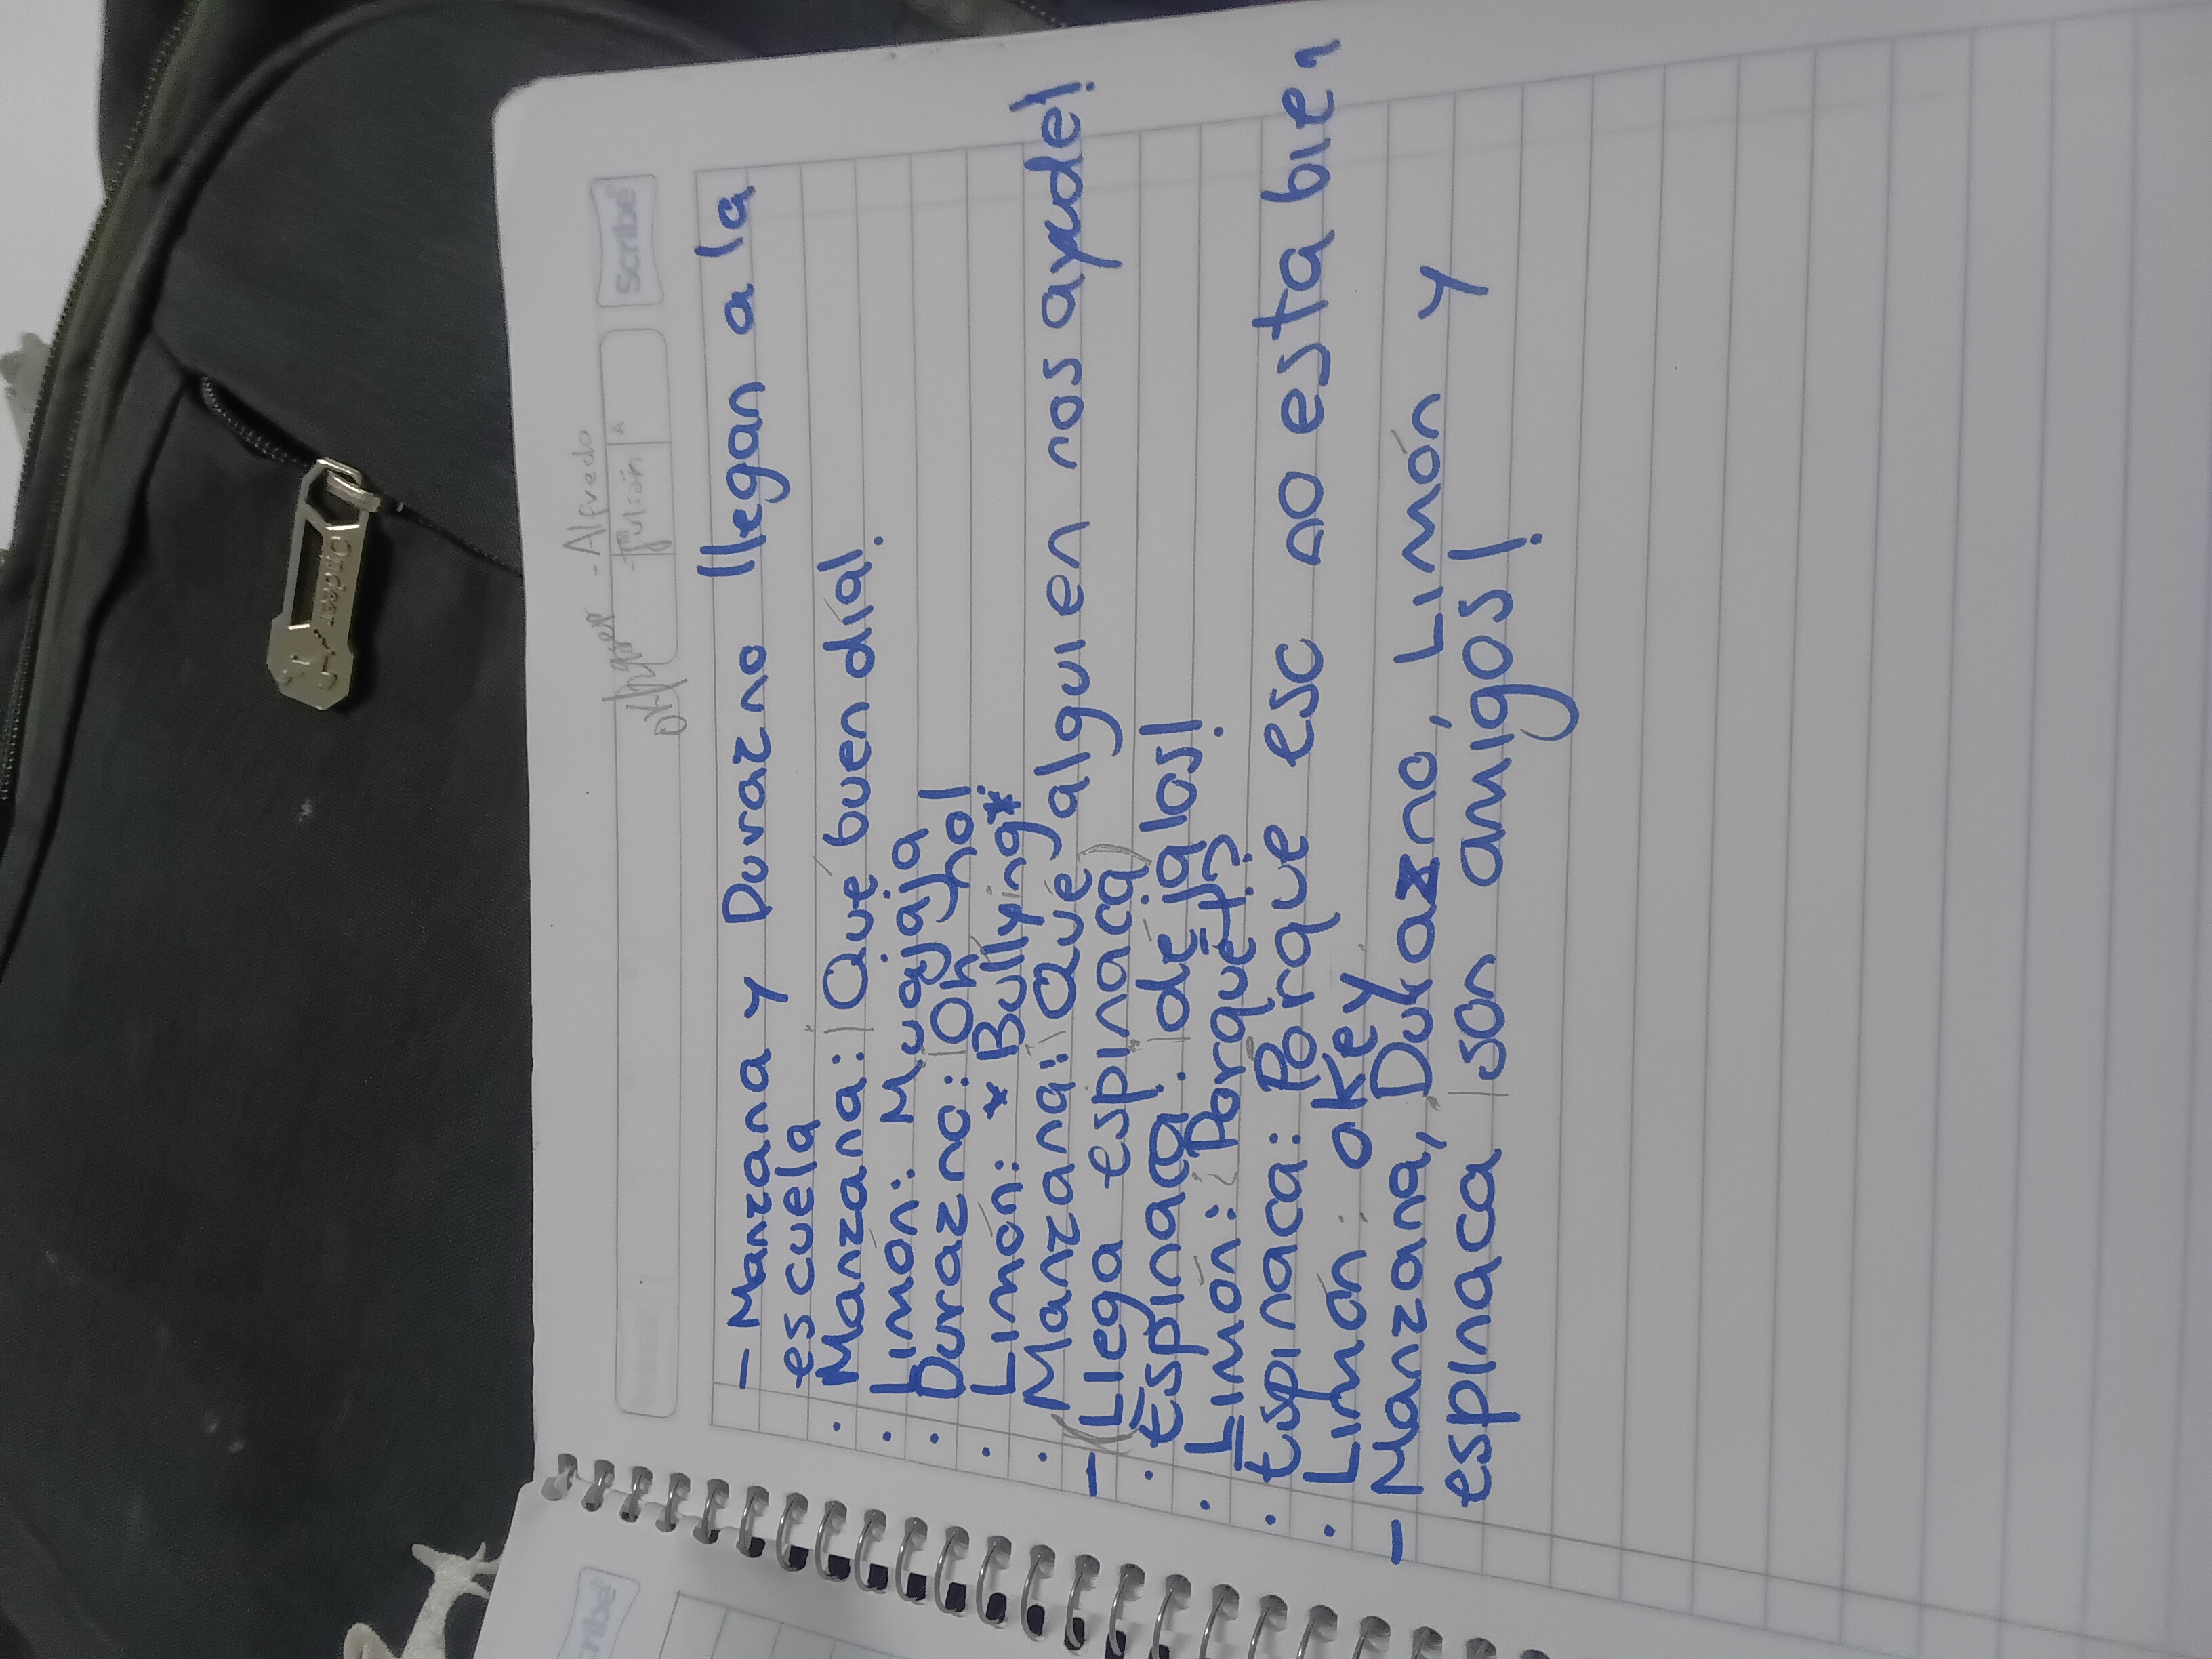 scribe
- Alfredo
Julián A
- Manzana y Durazno llegan a la
escuela
• Manzana: ¡Qué buen día!.
• Limón: Muajaja
• Durazno: ¡Oh no!
• Limón: *Bullying*
• Manzana: ¡Qué alguien nos ayude!
- (Llega espinaca)
• Espinaca: ¡déjalos!
• Limón: ¿Porqué?
• Espinaca: Porque eso no esta bien
• Limón: okey
- Manzana, Durazno, Limón y
espinaca ¡son amigos!
Ondeer
scribe